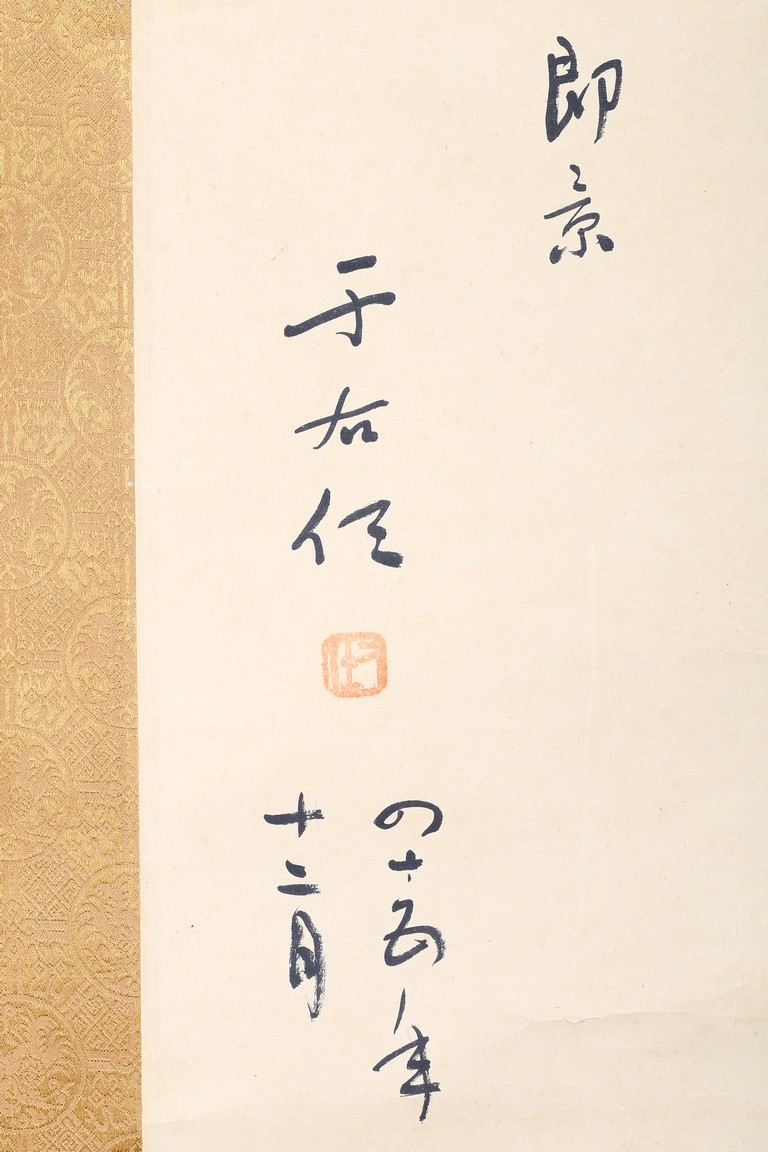 即景
于右任
四十五年
十二月